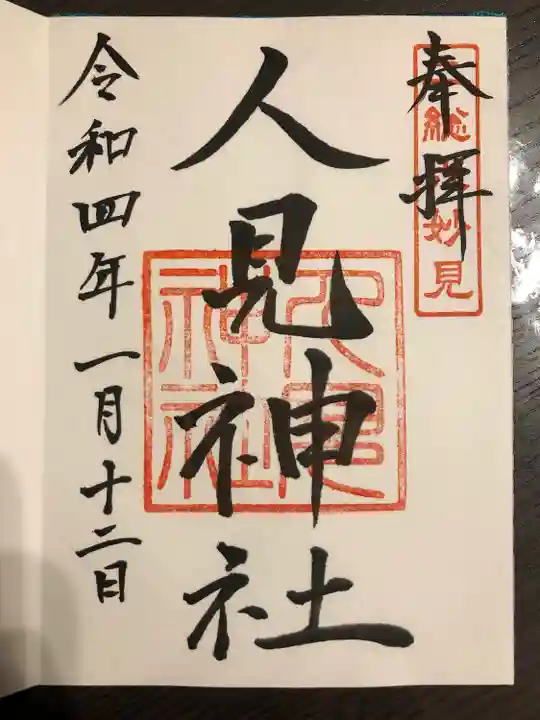 奉拝
総
妙見
人見神社
人見神社
令和四年一月十二日